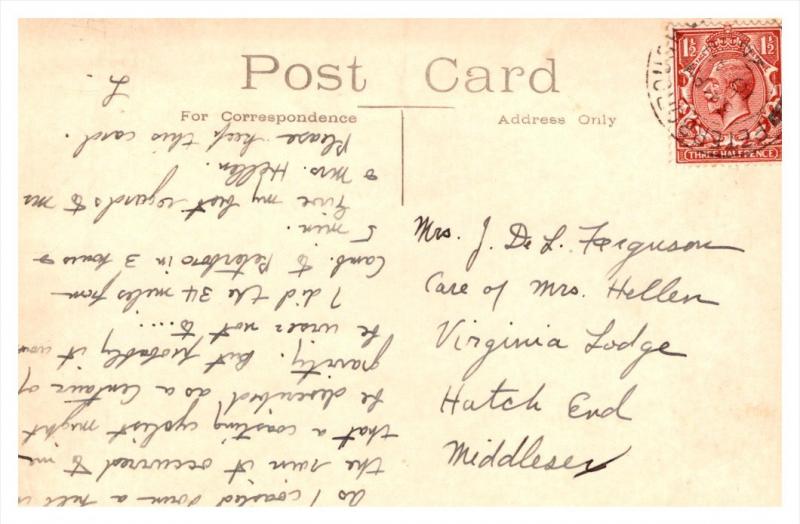 Post Card
For Correspondence
Address Only
1½ 1½
THREE HALFPENCE
Mrs. J. De L. Ferguson
Care of Mrs. Hellen
Virginia Lodge
Hatch End
Middlesex
as I coasted down a hill in
the rain it occurred to me
that a coasting cyclist might
be described as a Centaur of
gravity. But probably it wd
be wiser not to....
I did the 34 miles from
Camb. to Peterboro in 3 hours &
5 min.
Give my best regards to Mr
& Mrs. Hellen.
Please keep this card.
L.